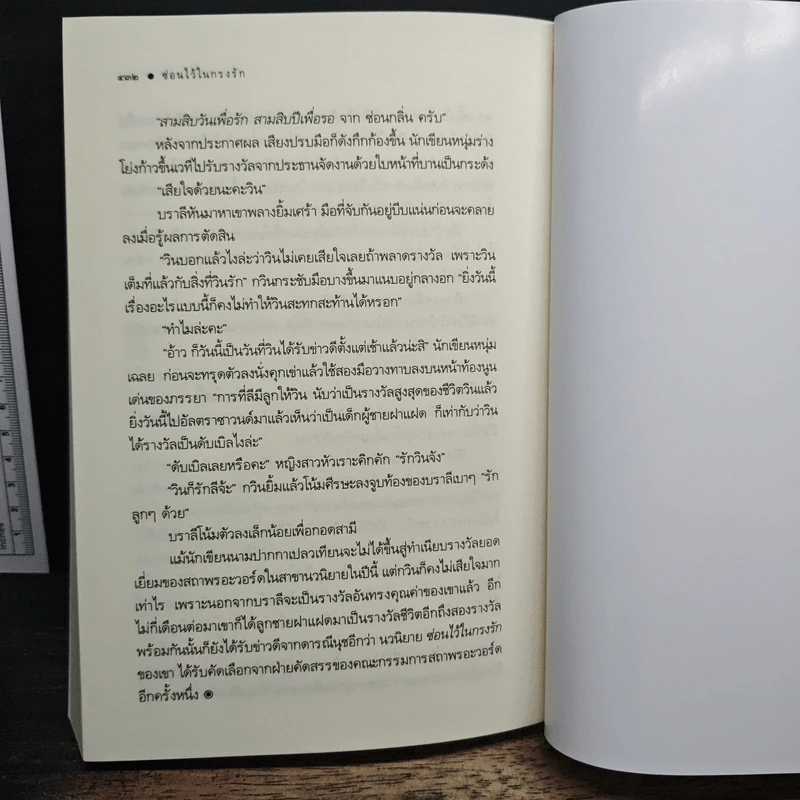 ๔๓๒ ● ซ่อนไว้ในกรงรัก
“สามสิบวันเพื่อรัก สามสิบปีเพื่อรอ จาก ซ่อนกลิ่น ครับ”
หลังจากประกาศผล เสียงปรบมือก็ดังกึกก้องขึ้น นักเขียนหนุ่มร่าง
โย่งก้าวขึ้นเวทีไปรับรางวัลจากประธานจัดงานด้วยใบหน้าที่บานเป็นกระด้ง
“เสียใจด้วยนะคะวิน”
บราลีหันมาหาเขาพลางยิ้มเศร้า มือที่จับกันอยู่บีบแน่นก่อนจะคลาย
ลงเมื่อรู้ผลการตัดสิน
“วินบอกแล้วไงล่ะว่าวินไม่เคยเสียใจเลยถ้าพลาดรางวัล เพราะวิน
เต็มที่แล้วกับสิ่งที่วินรัก” กวินกระชับมือบางขึ้นมาแนบอยู่กลางอก “ยิ่งวันนี้
เรื่องอะไรแบบนี้ก็คงไม่ทำให้วินสะทกสะท้านได้หรอก”
“ทำไมล่ะคะ”
“อ้าว ก็วันนี้เป็นวันที่วินได้รับข่าวดีตั้งแต่เช้าแล้วน่ะสิ” นักเขียนหนุ่ม
เฉลย ก่อนจะทรุดตัวลงนั่งคุกเข่าแล้วใช้สองมือวางทาบลงบนหน้าท้องนูน
เด่นของภรรยา “การที่ลีมีลูกให้วิน นับว่าเป็นรางวัลสูงสุดของชีวิตวินแล้ว
ยิ่งวันนี้ไปอัลตราซาวนด์มาแล้วเห็นว่าเป็นเด็กผู้ชายฝาแฝด ก็เท่ากับว่าวิน
ได้รางวัลเป็นดับเบิลไงล่ะ”
“ดับเบิลเลยหรือคะ” หญิงสาวหัวเราะคิกคัก “รักวินจัง”
“วินก็รักลีจ้ะ” กวินยิ้มแล้วโน้มศีรษะลงจูบท้องของบราลีเบาๆ “รัก
ลูกๆ ด้วย”
บราลีโน้มตัวลงเล็กน้อยเพื่อกอดสามี
แม้นักเขียนนามปากกาเปลวเทียนจะไม่ได้ขึ้นสู่ทำเนียบรางวัลยอด
เยี่ยมของสถาพรอะวอร์ดในสาขานวนิยายในปีนี้ แต่กวินก็คงไม่เสียใจมาก
เท่าไร เพราะนอกจากบราลีจะเป็นรางวัลอันทรงคุณค่าของเขาแล้ว อีก
ไม่กี่เดือนต่อมาเขาก็ได้ลูกชายฝาแฝดมาเป็นรางวัลชีวิตอีกถึงสองรางวัล
พร้อมกันนั้นก็ยังได้รับข่าวดีจากดารณีนุชอีกว่า นวนิยาย ซ่อนไว้ในกรงรัก
ของเขา ได้รับคัดเลือกจากฝ่ายคัดสรรของคณะกรรมการสถาพรอะวอร์ด
อีกครั้งหนึ่ง ◉